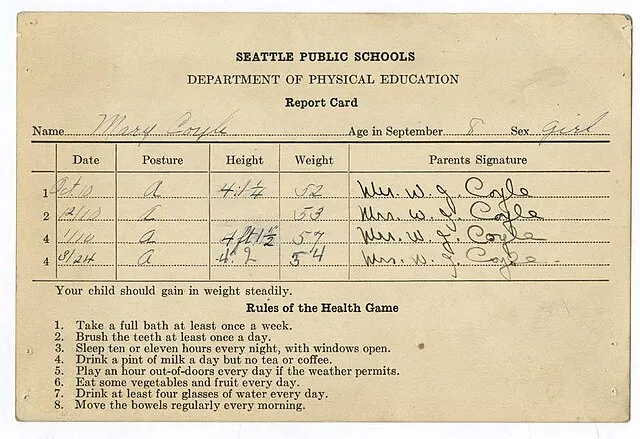 SEATTLE PUBLIC SCHOOLS
DEPARTMENT OF PHYSICAL EDUCATION
Report Card
Name Mary Coyle Age in September 8 Sex girl
Date Posture Height Weight Parents Signature
1 Oct 10 A 4:1¼ 52 Mrs. W. J. Coyle
2 12/10 A 53 Mrs. W. J. Coyle
4 1/10 A 4 ft 1½ 57 Mrs. W. J. Coyle
4 3/24 A 4' 2 54 Mrs. W. J. Coyle
Your child should gain in weight steadily.
Rules of the Health Game
1. Take a full bath at least once a week.
2. Brush the teeth at least once a day.
3. Sleep ten or eleven hours every night, with windows open.
4. Drink a pint of milk a day but no tea or coffee.
5. Play an hour out-of-doors every day if the weather permits.
6. Eat some vegetables and fruit every day.
7. Drink at least four glasses of water every day.
8. Move the bowels regularly every morning.